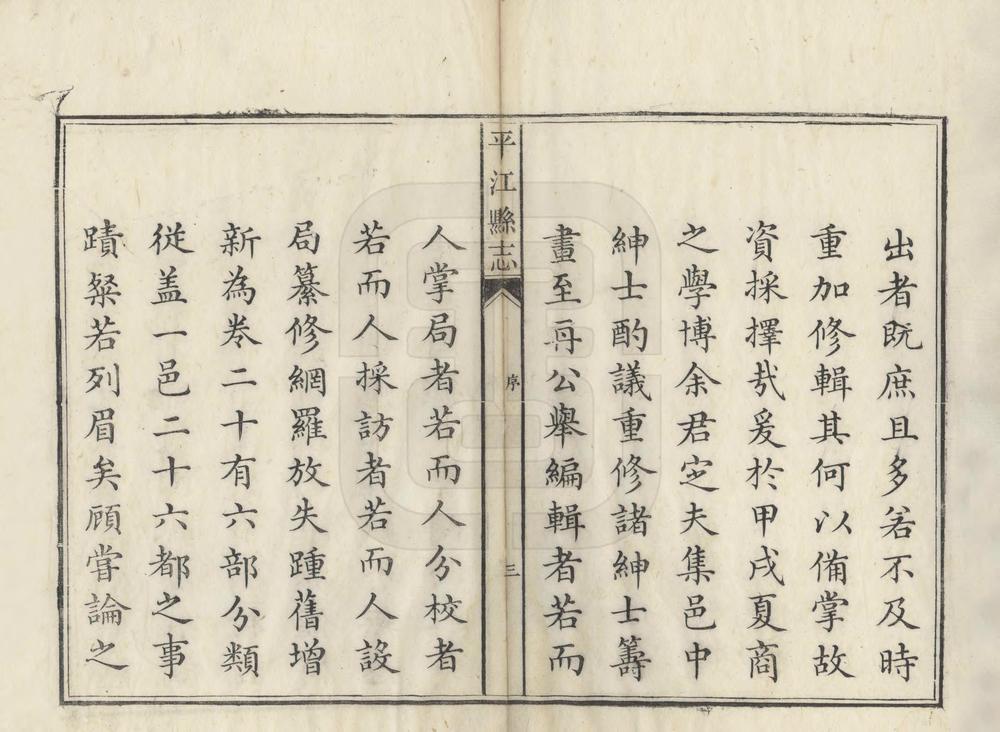 出者既庶且多若不及時
重加修輯其何以俻掌故
資採擇㢤爰於甲戌夏商
之學博余君定夫集邑中
紳士酌議重修諸紳士籌
畫至再公舉編輯者若而
平江縣志
序
三
人掌局者若而人分校者
若而人採訪者若而人設
局纂修網羅放失踵舊增
新為卷二十有六部分類
從盖一邑二十六都之事
蹟粲若列眉矣顧嘗論之